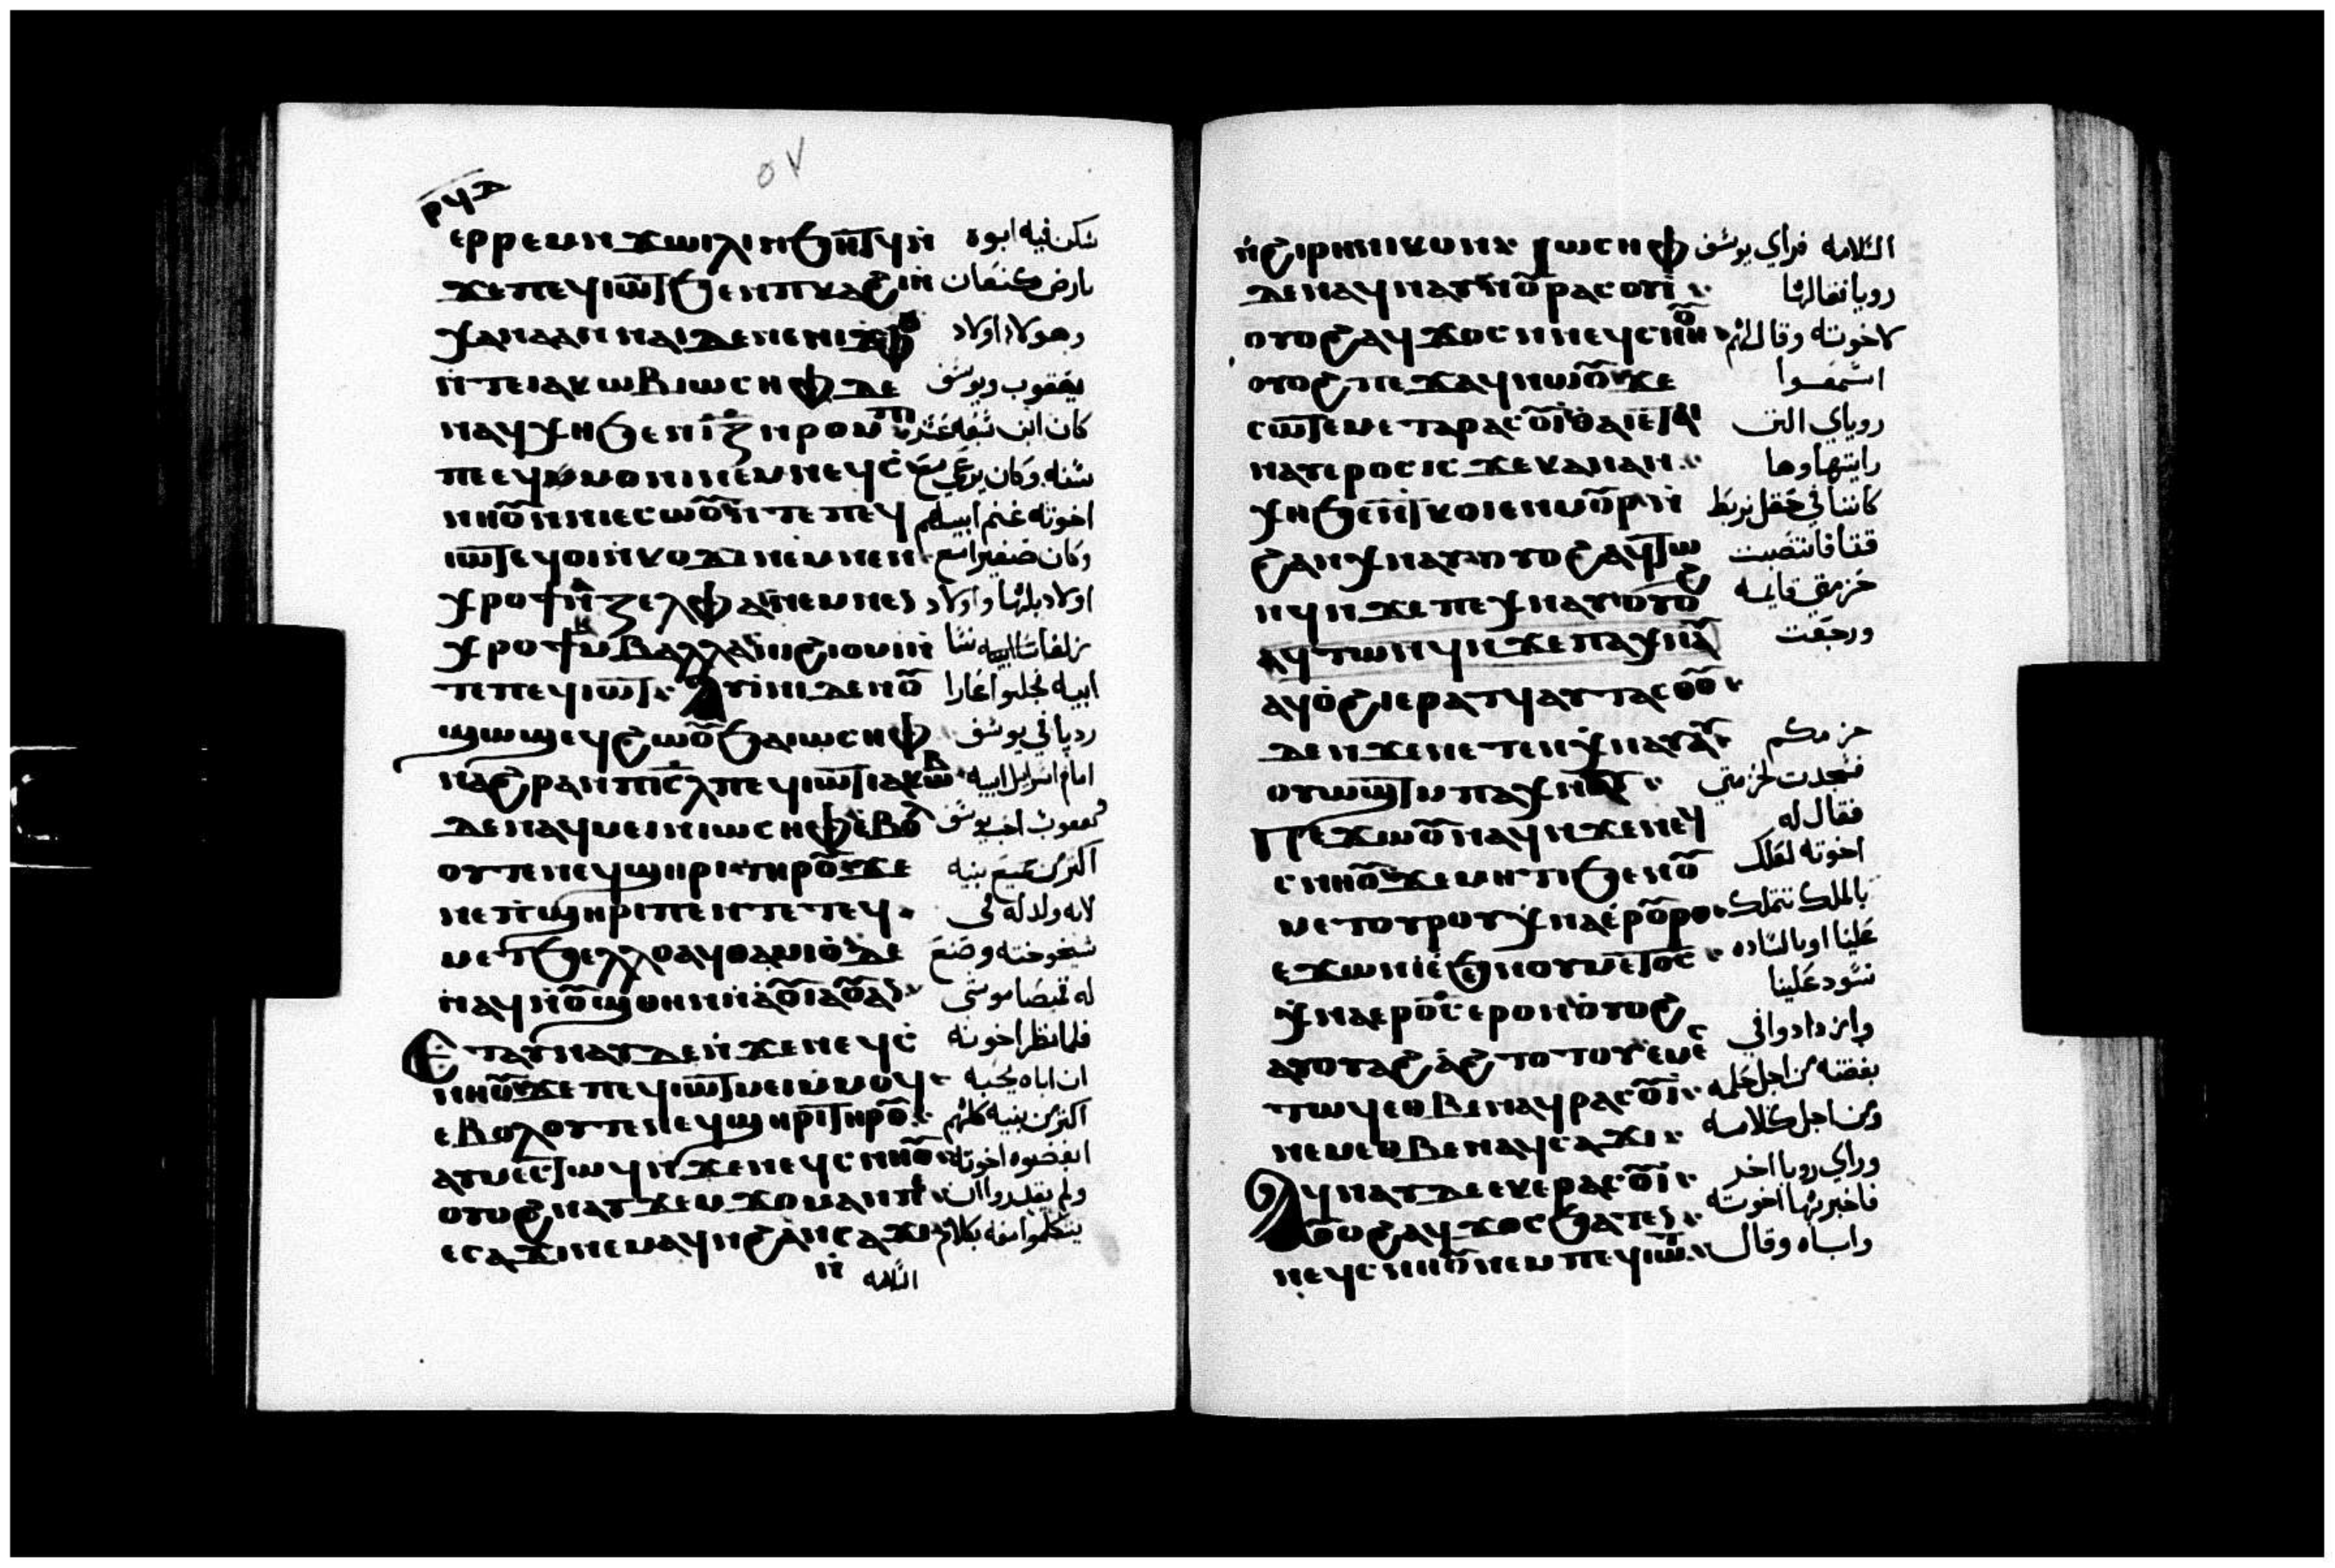 ⲣϥⲇ
٥٧
ⲉⲣⲣⲉⲙⲛϫⲱⲓⲗⲓⲛϧⲏⲧϥⲛ̀ سكن فيه ابوه
ϫⲉⲡⲉϥⲓⲱⲧϧⲉⲛⲡⲕⲁϩⲓⲛ̀ بارض كنعان
ⲭⲁⲛⲁⲁⲛⲛⲁⲓⲇⲉⲛⲉⲛⲓϫⲫⲟ وهولاء اولاد
ⲛ̀ⲧⲉⲓⲁⲕⲱⲃⲓⲱⲥⲏⲫⲇⲉ يعقوب ويوسف
ⲛⲁϥⲭⲏϧⲉⲛⲓ̅ⲍ̅ⲛⲣⲟⲙⲡⲓ كان ابن سبعه عشر
ⲡⲉⲉϥⲙⲟⲛⲓⲛⲉⲙⲛⲉϥⲥ̀ سنه وكان يرعي مع
ⲛⲏⲟⲩⲛⲛⲓⲉⲥⲱⲟⲩⲛ̀ⲧⲉⲡⲉϥ اخوته غنم ابيهم
ⲓⲱⲧⲉϥⲟⲓⲛ̀ⲕⲟⲩϫⲓⲛⲉⲙⲛⲉⲛ وكان صغيرا مع
ⲭⲣⲟϯⲛ̀ⲍⲉⲗⲫⲁⲛⲉⲙⲛⲉⲛ اولاد بلها واولاد
ⲭⲣⲟϯⲙ̀ⲃⲁⲗⲗⲁⲛⲓϩⲓⲟⲙⲓⲛ̀ زلفا نسا
ⲧⲉⲡⲉϥⲓⲱⲧ ⲁⲩⲓⲛⲓⲇⲉⲛⲟⲩ ابيه فجلبوا عارا
ϣⲱϣⲉϥϩⲱⲟⲩϧⲁⲓⲱⲥⲏⲫ رديا في يوسف
ⲛⲁϩⲣⲁⲛⲡⲓⲥ̅ⲗⲡⲉϥⲓⲱⲧⲓⲁⲕⲱⲃ امام اسراييل ابيه
ⲇⲉⲛⲁϥⲙⲉⲓⲛⲓⲱⲥⲏⲫⲉ̀ⲃⲟⲗ احب يوسف
ⲟⲩⲧⲉⲛⲉϥϣⲏⲣⲓⲧⲏⲣⲟⲩϫⲉ اكثر من جميع بنيه
ⲛⲉⲡ̀ϣⲏⲣⲓⲡⲉⲛⲧⲉⲧⲉϥ لانه ولد له في
ⲙⲉⲧϧⲉⲗⲗⲟⲁϥⲑⲁⲙⲓⲟ̀ⲇⲉ شيخوخته وصنع
ⲛⲁϥⲛ̀ⲟⲩϣⲑⲏⲛⲛ̀ⲁ̀ⲟⲩⲓⲁ̀ⲟⲩⲁⲛ له قميصا موشي
ⲉⲧⲁⲩⲛⲁⲩⲇⲉⲛ̀ϫⲉⲛⲉϥⲥ̀ فلما نظر اخوته
ⲛⲏⲟⲩϫⲉⲡⲉϥⲓⲱⲧⲙⲉⲓⲙ̀ⲙⲟϥ ان اباه يحبه
ⲉⲃⲟⲗⲟⲩⲧⲉⲛⲉϥϣⲏⲣⲓⲧⲏⲣⲟⲩ اكثر من بنيه كلهم
ⲁⲩⲙⲉⲥⲧⲱϥⲛ̀ϫⲉⲛⲉϥⲥⲛⲏⲟⲩ ابغضوه اخوته
ⲟⲩⲟϩⲛⲁⲩϫⲉⲙϫⲟⲙⲁⲛⲡⲉ ولم يقدروا ان
ⲉⲥⲁϫⲓⲛⲉⲙⲁϥⲛ̀ϩⲁⲛⲥⲁϫⲓ يتكلموا معه بكلام
ⲛ̀ السلامه
ⲛ̀ϩⲓⲣⲏⲛⲓⲕⲟⲛ ⲓⲱⲥⲏⲫ السلامه فراي يوسف
ⲇⲉⲛⲁϥⲛⲁⲩⲛ̀ⲟⲩⲣⲁⲥⲟⲩⲓ رويا فقالها
ⲟⲩⲟϩⲁϥϫⲟⲥⲛ̀ⲛⲉϥⲥⲛⲏⲟⲩ لاخوته وقال لهم
ⲟⲩⲟϩⲡⲉϫⲁϥⲛⲱⲟⲩϫⲉ اسمعوا
ⲥⲱⲧⲉⲙⲉⲧⲁⲣⲁⲥⲟⲩⲓⲑⲁⲓⲉⲧⲁⲓ روياي التي
ⲛⲁⲩⲉⲣⲟⲥⲓⲥϫⲉⲕⲁⲛⲁⲛ رايتها وها
ⲭⲏϧⲉⲛⲧⲕⲟⲓⲉⲛⲙⲟⲩⲣⲛ̀ كاننا في حقل نربط
ϩⲁⲛⲭⲛⲁⲩⲟⲩⲟϩⲁϥⲧⲱ قتا فانتصبت
ⲛϥⲛ̀ϫⲉⲡⲉⲭⲛⲁⲩⲟⲩⲟϩ حزمتي قايمه
ⲁϥⲧⲱⲛϥⲛ̀ϫⲉⲡⲁⲭⲛⲁⲩ ورجعت
ⲁϥⲟ̀ϩⲓⲉⲣⲁⲧϥⲁⲩⲧⲁⲥⲑⲟ
ⲇⲉⲛ̀ϫⲉⲛⲉⲧⲉⲛⲭⲛⲁⲩⲁⲩ حزمكم
ⲟⲩⲱϣⲧⲙ̀ⲡⲁⲭⲛⲁⲩ فسجدت لحزمتي
ⲡⲉϫⲱⲟⲩⲛⲁϥⲛ̀ϫⲉⲛⲉϥ فقال له
ⲥⲛⲏⲟⲩϫⲉⲙⲏⲧⲓϧⲉⲛⲟⲩ اخوته لعلك
ⲙⲉⲧⲟⲩⲣⲟⲭ̀ⲛⲁⲉ̀ⲣⲟⲩⲣⲟ بالملك تتملك
ⲉϫⲱⲛⲓⲉ̀ϧⲉⲛⲟⲩⲙⲉⲧⲟⲥ علينا او بالساده
ⲭ̀ⲛⲁⲉⲣⲟⲥⲉⲣⲟⲛⲟⲩⲟϩ تسود علينا
ⲁⲩⲟⲩⲁϩⲁ̀ϩⲧⲟⲧⲟⲩⲉ̀ⲙⲉⲥ وازدادوا في
ⲧⲱϥⲉⲑⲃⲉⲛⲁϥⲣⲁⲥⲟⲩⲓ بغضته من اجل حلمه
ⲛⲉⲙⲉⲑⲃⲉⲛⲁϥⲥⲁϫⲓ ومن اجل كلامه
ⲁϥⲛⲁⲩⲇⲉⲉⲕⲉⲣⲁⲥⲟⲩⲓ وراي رويا اخر
ⲟⲩⲟϩⲁϥϫⲟⲥϧⲁⲧⲉⲛ فاخبر بها اخوته
ⲛⲉϥⲥⲛⲏⲟⲩⲛⲉⲙⲡⲉϥⲓⲱⲧ واباه وقال